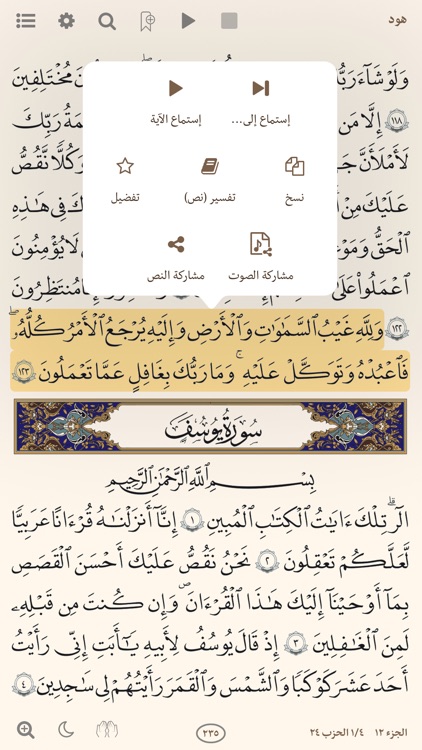 هود
وَلَوْ شَآءَ رَبُّ
نَ مُخْتَلِفِينَ
١١٨ إِلَّا مَن
مَةُ رَبِّكَ
لَأَمْلَأَنَّ جَ
١١٩ وَكُلًّا نَّقُصُّ
عَلَيْكَ مِنْ أَ
كَ فِى هَـٰذِهِ
ٱلْحَقُّ وَمَوْ
لَا يُؤْمِنُونَ
ٱعْمَلُوا۟ عَلَىٰ
مُنتَظِرُونَ
إستماع إلى...
إستماع الآية
نسخ
تفسير (نص)
تفضيل
مشاركة الصوت
مشاركة النص
١٢٢ وَلِلَّهِ غَيْبُ ٱلسَّمَـٰوَٰتِ وَٱلْأَرْضِ وَإِلَيْهِ يُرْجَعُ ٱلْأَمْرُ كُلُّهُۥ
فَٱعْبُدْهُ وَتَوَكَّلْ عَلَيْهِ ۚ وَمَا رَبُّكَ بِغَـٰفِلٍ عَمَّا تَعْمَلُونَ ١٢٣
سُورَةُ يُوسُفَ
بِسْمِ ٱللَّهِ ٱلرَّحْمَـٰنِ ٱلرَّحِيمِ
الٓر ۚ تِلْكَ ءَايَـٰتُ ٱلْكِتَـٰبِ ٱلْمُبِينِ ١ إِنَّآ أَنزَلْنَـٰهُ قُرْءَٰنًا عَرَبِيًّا
لَّعَلَّكُمْ تَعْقِلُونَ ٢ نَحْنُ نَقُصُّ عَلَيْكَ أَحْسَنَ ٱلْقَصَصِ
بِمَآ أَوْحَيْنَآ إِلَيْكَ هَـٰذَا ٱلْقُرْءَانَ وَإِن كُنتَ مِن قَبْلِهِۦ
لَمِنَ ٱلْغَـٰفِلِينَ ٣ إِذْ قَالَ يُوسُفُ لِأَبِيهِ يَـٰٓأَبَتِ إِنِّى رَأَيْتُ
أَحَدَ عَشَرَ كَوْكَبًا وَٱلشَّمْسَ وَٱلْقَمَرَ رَأَيْتُهُمْ لِى سَـٰجِدِينَ ٤
الجزء ١٢
١/٤ الحزب ٢٤
٢٣٥